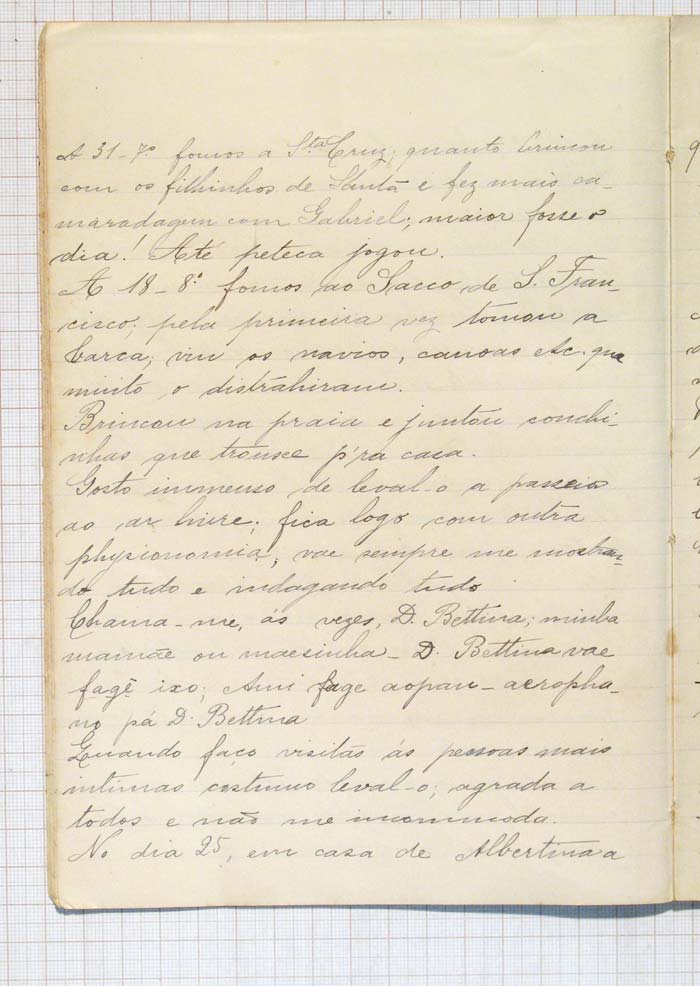 A 31-7º fomos a Sta Cruz; quanto brincou
com os filhinhos de Santa e fez mais ca-
maradagem com Gabriel; maior fosse o
dia! Até peteca jogou.
A 18-8º fomos ao Sacco de S. Fran-
cisco; pela primeira vez tomou a
barca; viu os navios, canoas etc. que
muito o distrahiram.
Brincou na praia e juntou conchi-
nhas que trouxe p'ra casa.
Gosto immenso de leval-o a passeios
ao ar livre; fica logo com outra
physionomia, vae sempre me mostran-
do tudo e indagando tudo
Chama-me, ás vezes, D. Bettina; minha
mamãe ou maesinha - D. Bettina vae
fagê ixo; Ami fage aopan - aeropha-
no pá D. Bettina
Quando faço visitas ás pessoas mais
intimas costumo leval-o; agrada a
todos e não me incommoda.
No dia 25, em casa de Albertina a